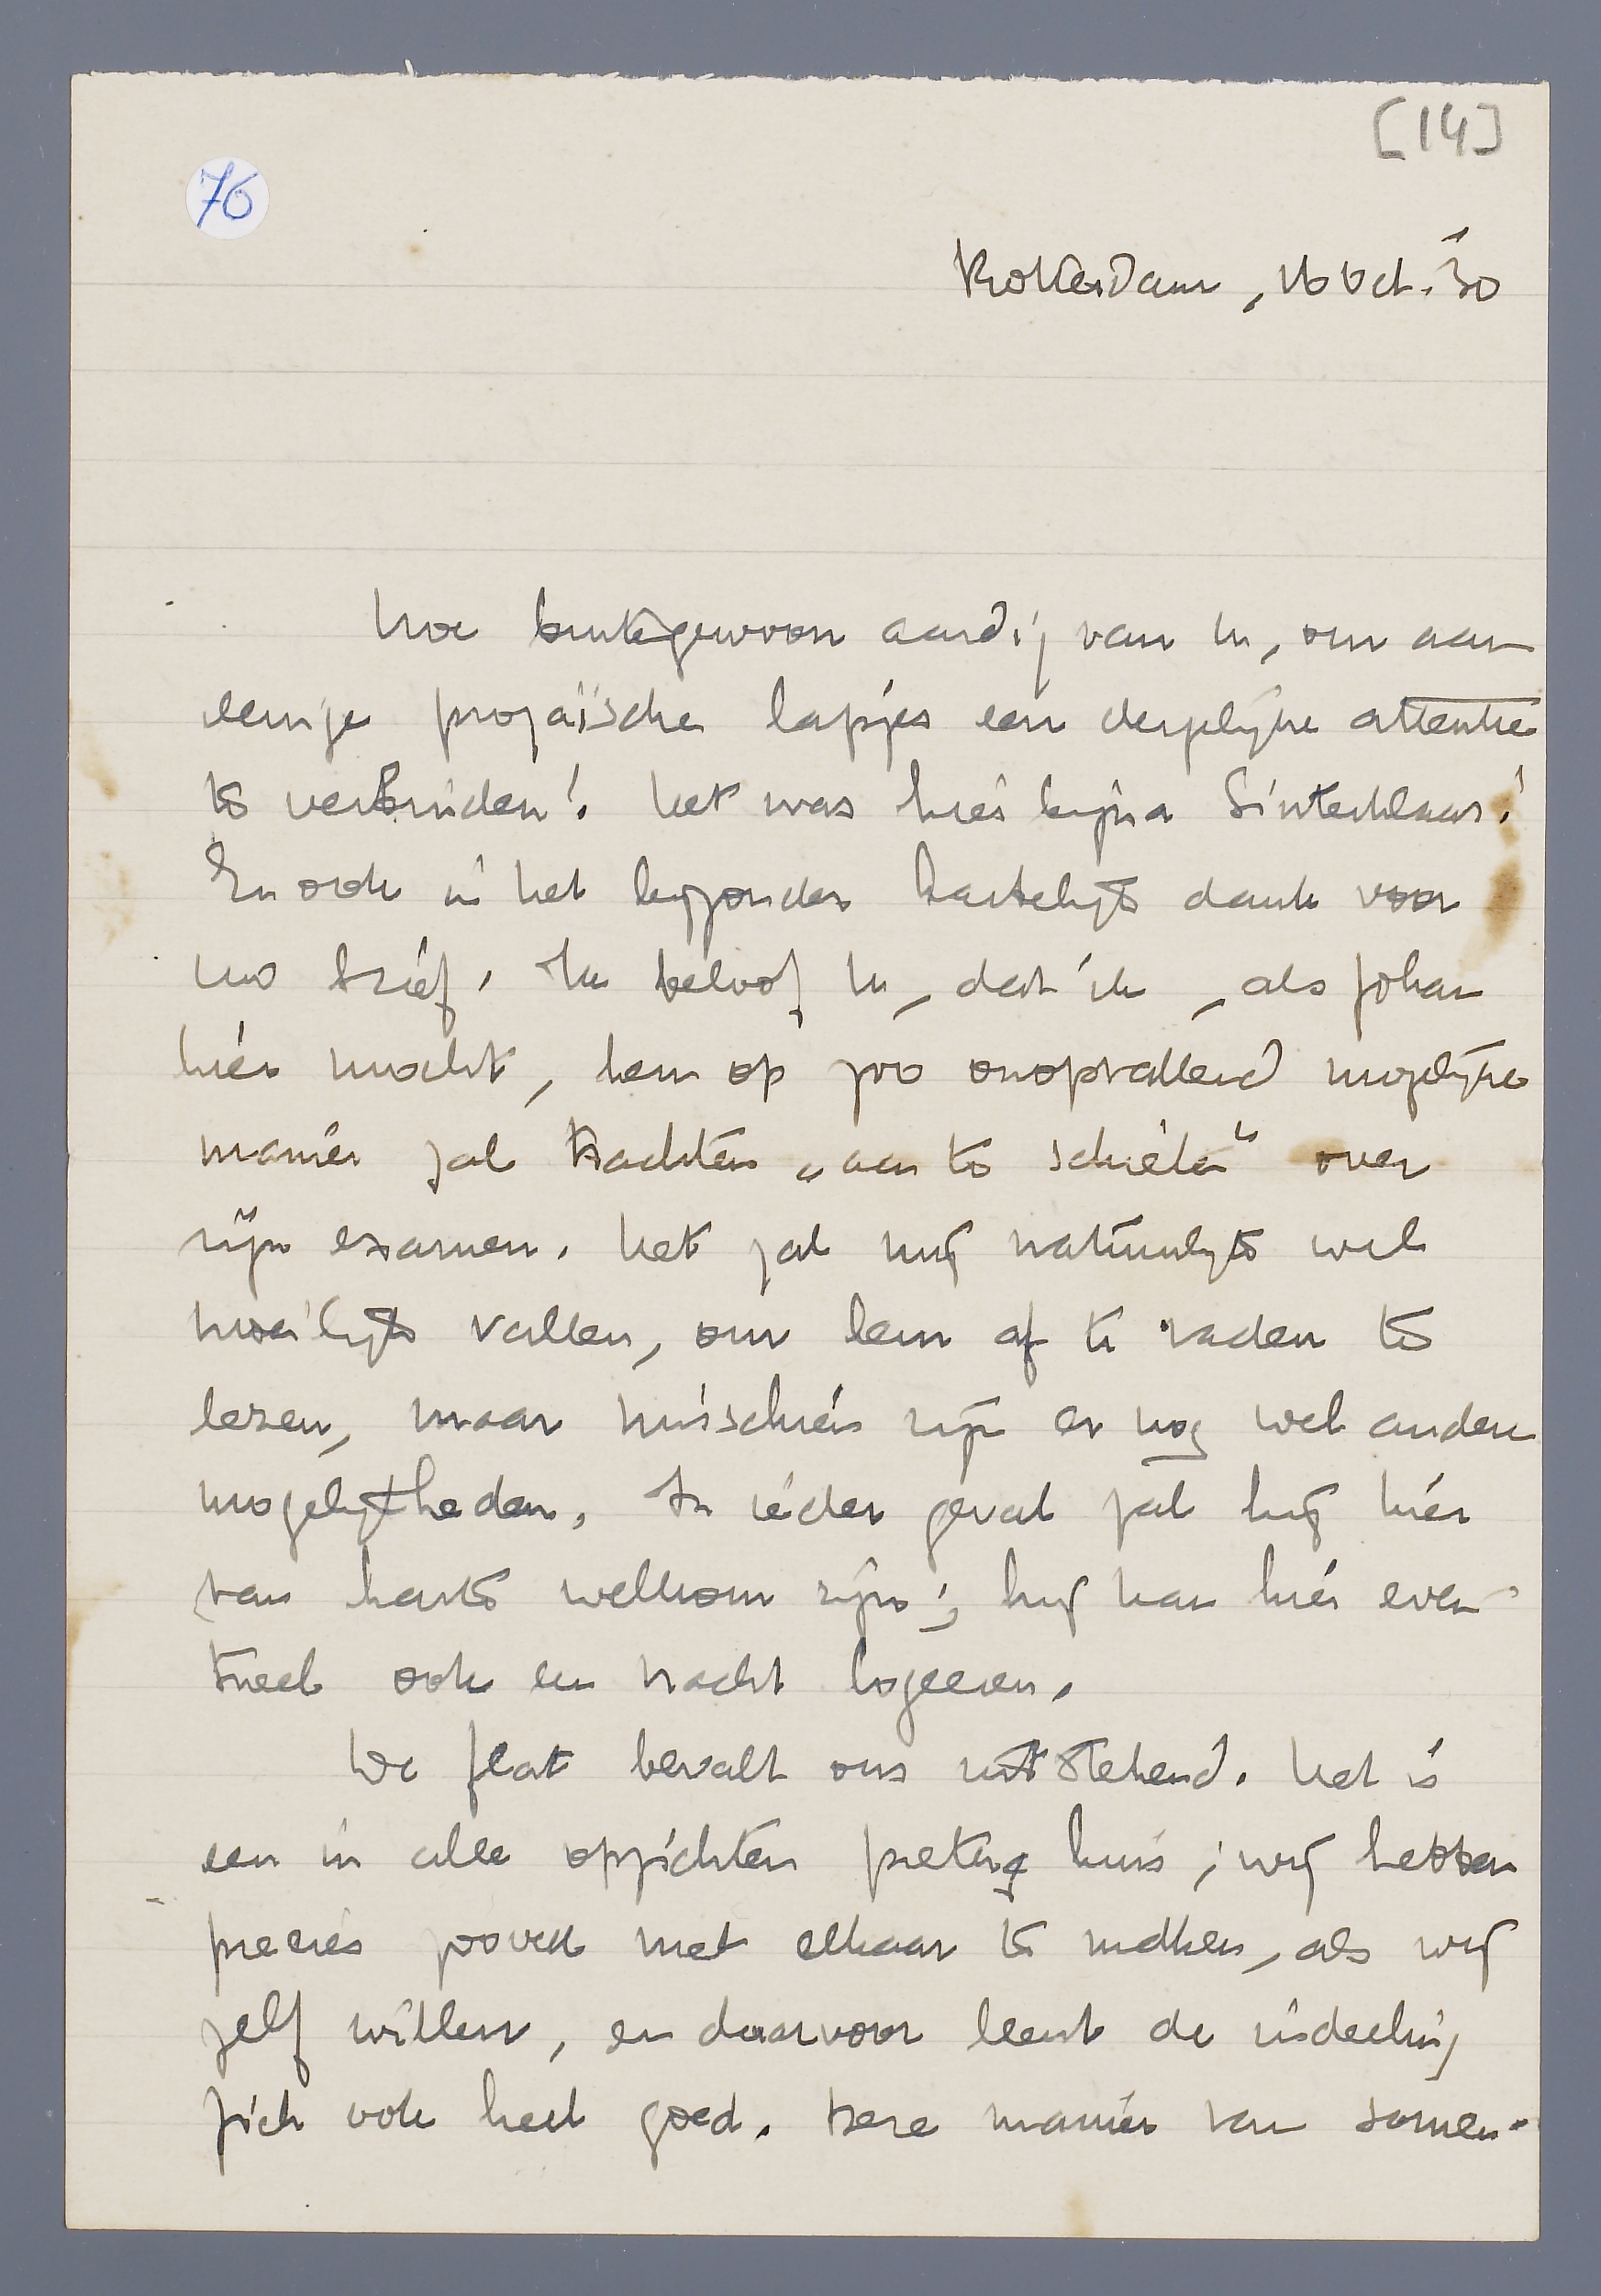 [14]
76
Rotterdam, 16 Oct. '30
Hoe buitengewoon aardig van U, om aan
eenige prozaïsche lapjes een dergelijke attentie
te verbinden! Het was hier bijna Sinterklaas!
En ook in het bijzonder hartelijk dank voor
Uw brief. Ik beloof U, dat ik, als Johan
hier mocht, hem op zoo onopvallend mogelijke
manier zal trachten „aan te schieten" over
zijn examen. Het zal mij natuurlijk wel
moeilijk vallen, om hem af te raden te
lezen, maar misschien zijn er nog wel andere
mogelijkheden. In ieder geval zal hij hier
van harte welkom zijn; hij kan hier even-
tueel ook een nacht logeeren.
De flat bevalt ons uitstekend. Het is
een in alle opzichten prettig huis; wij hebben
precies zooveel met elkaar te maken, als wij
zelf willen, en daarvoor leent de indeeling
zich ook heel goed. Deze manier van samen-